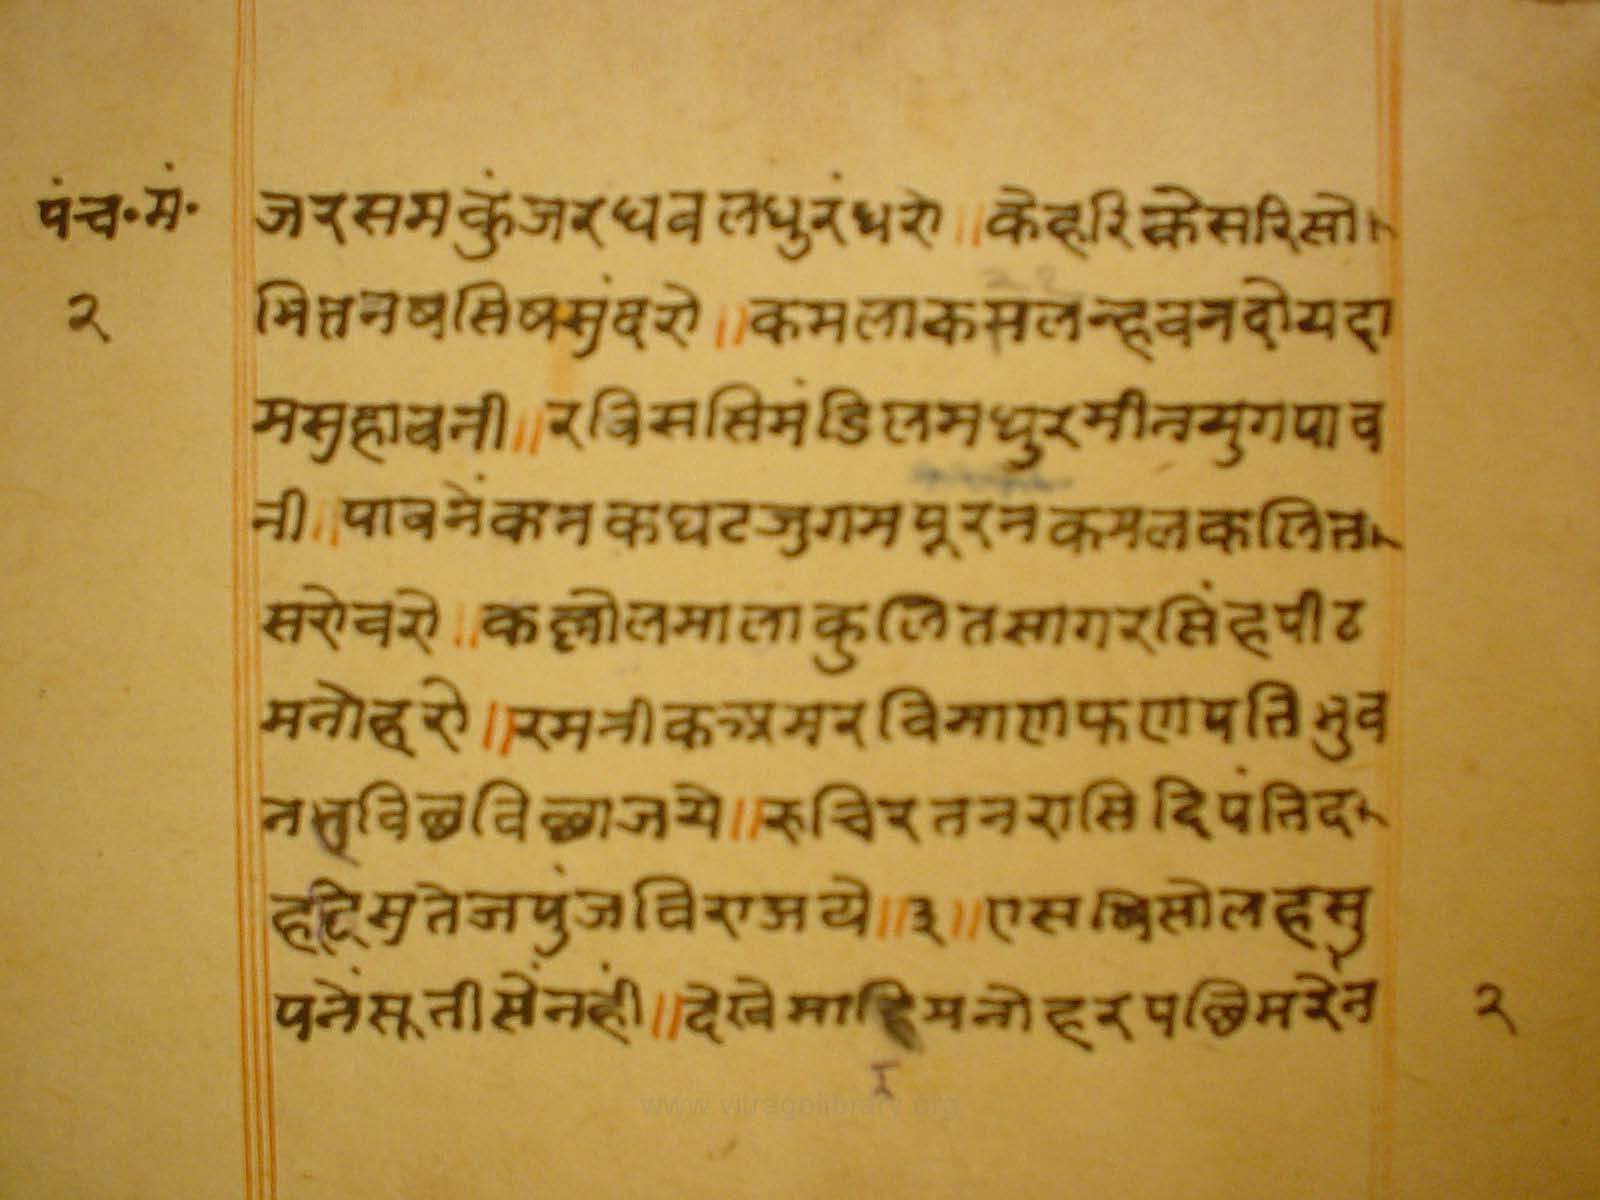 पंच.मं.
२
जरसमकुंजरधवलधुरंधरो ॥ केहरिकेसरिसो
भितनषसिषसुंदरो ॥ कमलाकसलन्हवनदोयदा
मसुहावनी ॥ रविससिमंडिलमधुरमीनयुगपाव
नी ॥ पावनेंकनकघटजुगमपूरनकमलकलित
सरोवरो ॥ कल्लोलमालाकुलितसागरसिंहपीठ
मनोहरो ॥ रमनीकअमरविमाणफणपतिभुव
नभुविछविछाजये ॥ रुचिरतनरासिदिपंतिद
हिमुतेजपुंजविराजये ॥ ३ ॥ एसषिसोलहसु
पनेंसूतीसेंनहीं ॥ देखेमाहिमनोहरपछिमरेंन
२
www.vitragolibrary.org